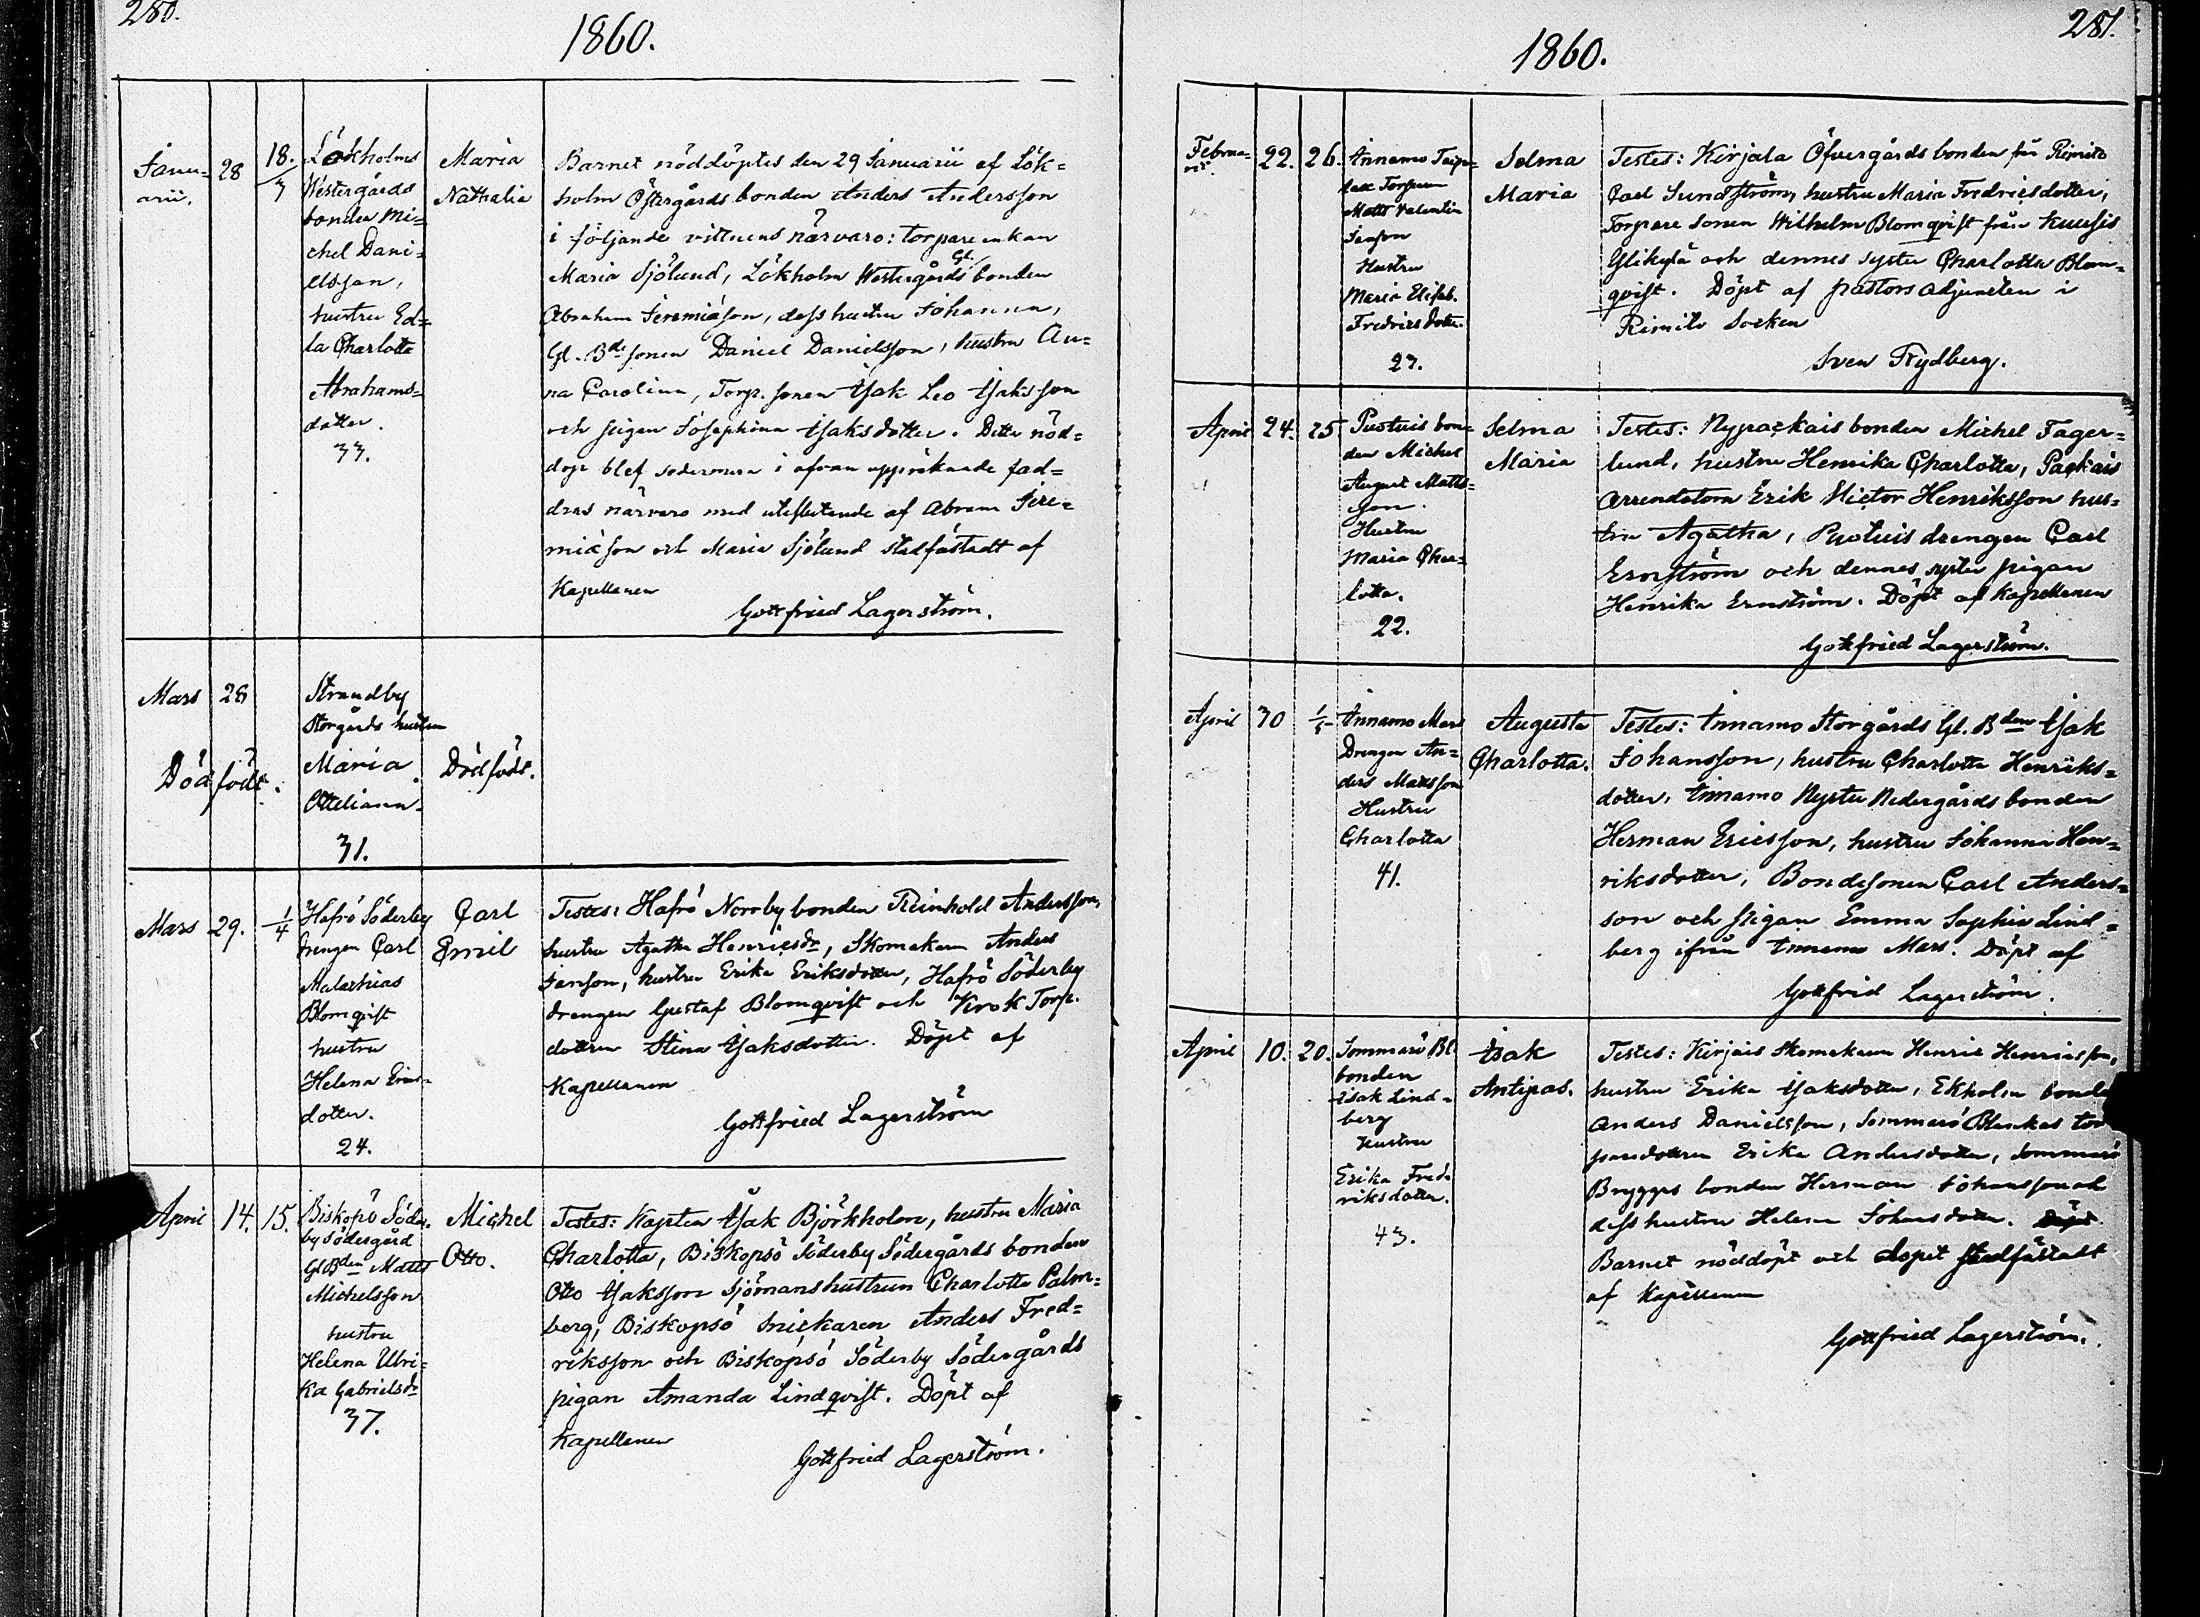 280.
1860.
Janu-
arii.
28
18.
/3
Lökholms
Westergårds
bonden Mi-
chel Dani-
elsson,
hustru Ed-
la Charlotte
Abrahams-
dotter.
33.
Maria
Nathalia
Barnet nöddöptes den 29 Januarii af Lök-
holm Östergårds bonden Anders Andersson
i följande vittnens närvaro: torpare enkan
Maria Sjölund, Lökholm Westergårds Gl. bonden
Abraham Jeremiäson, dess hustru Johanna,
Gl. Bde sonen Daniel Danielsson, hustru An-
na Carolina, Torp. sonen Isak Leo Isaksson
och pigan Josephina Isaksdotter. Detta nöd-
dop blef sedermera i ofvan uppräknade fad-
dras närvaro med uteslutande af Abram Jere-
miäson och Maria Sjölund stadfästadt af
Kapellanen
Gottfried Lagerström.
Mars
28
Dödfödt.
Strandby
Storgårds hustru
Maria
Ottiliana.
31.
Dödfödt.
Mars
29.
1/4
Hafrö Söderby
drengen Carl
Malachias
Blomqvist
hustru
Helena Erics-
dotter.
24.
Carl
Emil
Testes: Hafrö Norrby bonden Reinhold Andersson,
hustru Agatha Henricsdr, Skomakaren Anders
Janson, hustru Erika Eriksdotter, Hafrö Söderby
drengen Gustaf Blomqvist och Krok Torp.
dottren Stina Isaksdotter. Döpt af
Kapellanen
Gottfried Lagerström
April
14.
15.
Biskopsö Söder-
by Södergård
Gl Bden Matts
Michelsson
hustru
Helena Ulri-
ka Gabrielsdr
37.
Michel
Otto.
Testes: Kapten Isak Björkholm, hustru Maria
Charlotta, Biskopsö Söderby Södergårds bonden
Otto Isaksson Sjömanshustrun Charlotta Palm-
berg, Biskopsö Snickaren Anders Fred-
riksson och Biskopsö Söderby Södergårds
pigan Amanda Lindqvist. Döpt af
Kapellanen
Gottfried Lagerström.
281.
1860.
Februa-
rii.
22.
26.
Innamo Teip-
Torparen
Matts Valentin
Janson
Hustru
Maria Elisab.
Fredricsdotter.
23.
Selma
Maria
Testes: Kirjala Öfvergårds bonden från Rimito
Carl Sundström, hustru Maria Fredricsdotter,
Torpare sonen Wilhelm Blomqvist från Kuusis
Ylikylä och dennes syster Charlotta Blom-
qvist. Döpt af pastors adjuncten i
Rimito Socken
Sven Rydberg.
April
24.
25
Puotuis bon-
den Michel
August Matts-
son.
Hustru
Maria Char-
lotta.
22.
Selma
Maria
Testes: Nypackais bonden Michel Fager-
lund, hustru Henrika Charlotta, Packais
Arrendatorn Erik Victor Henriksson hus-
tru Agatha, Puotuis drengen Carl
Ernström och dennes syster pigan
Henrika Ernström. Döpt af Kapellanen
Gottfried Lagerström.
April
30
1/5
Innamo Mars
Drengen An-
ders Matsson
Hustru
Charlotta
41.
Augusta
Charlotta.
Testes: Innamo Storgårds Gl. Bden Isak
Johansson, hustru Charlotta Henriks-
dotter, Innamo Nystu Nedergårds bonden
Herman Ericsson, hustru Johanna Hen-
riksdotter, Bondesonen Carl Anders-
son och pigan Emma Sophia Lind-
berg ifrån Innamo Mars. Döpt af
Gottfrid Lagerström.
April
10.
20.
Sommarö Bl.
bonden
Isak Lind-
berg
Hustru
Erika Fred-
riksdotter.
43.
Isak
Antipas.
Testes: Kirjais Skomakaren Henric Henricsson,
hustru Erika Isaksdotter, Ekholm bonde
Anders Danielsson, Sommarö Blenkas tor
paredottren Erika Andersdotter, Sommarö
Brygges bonden Herman Johansson och
dess hustru Helena Johansdotter. Döpt
Barnet nöddöpt och dopet stadfästadt
af Kapellanen
Gottfried Lagerström.